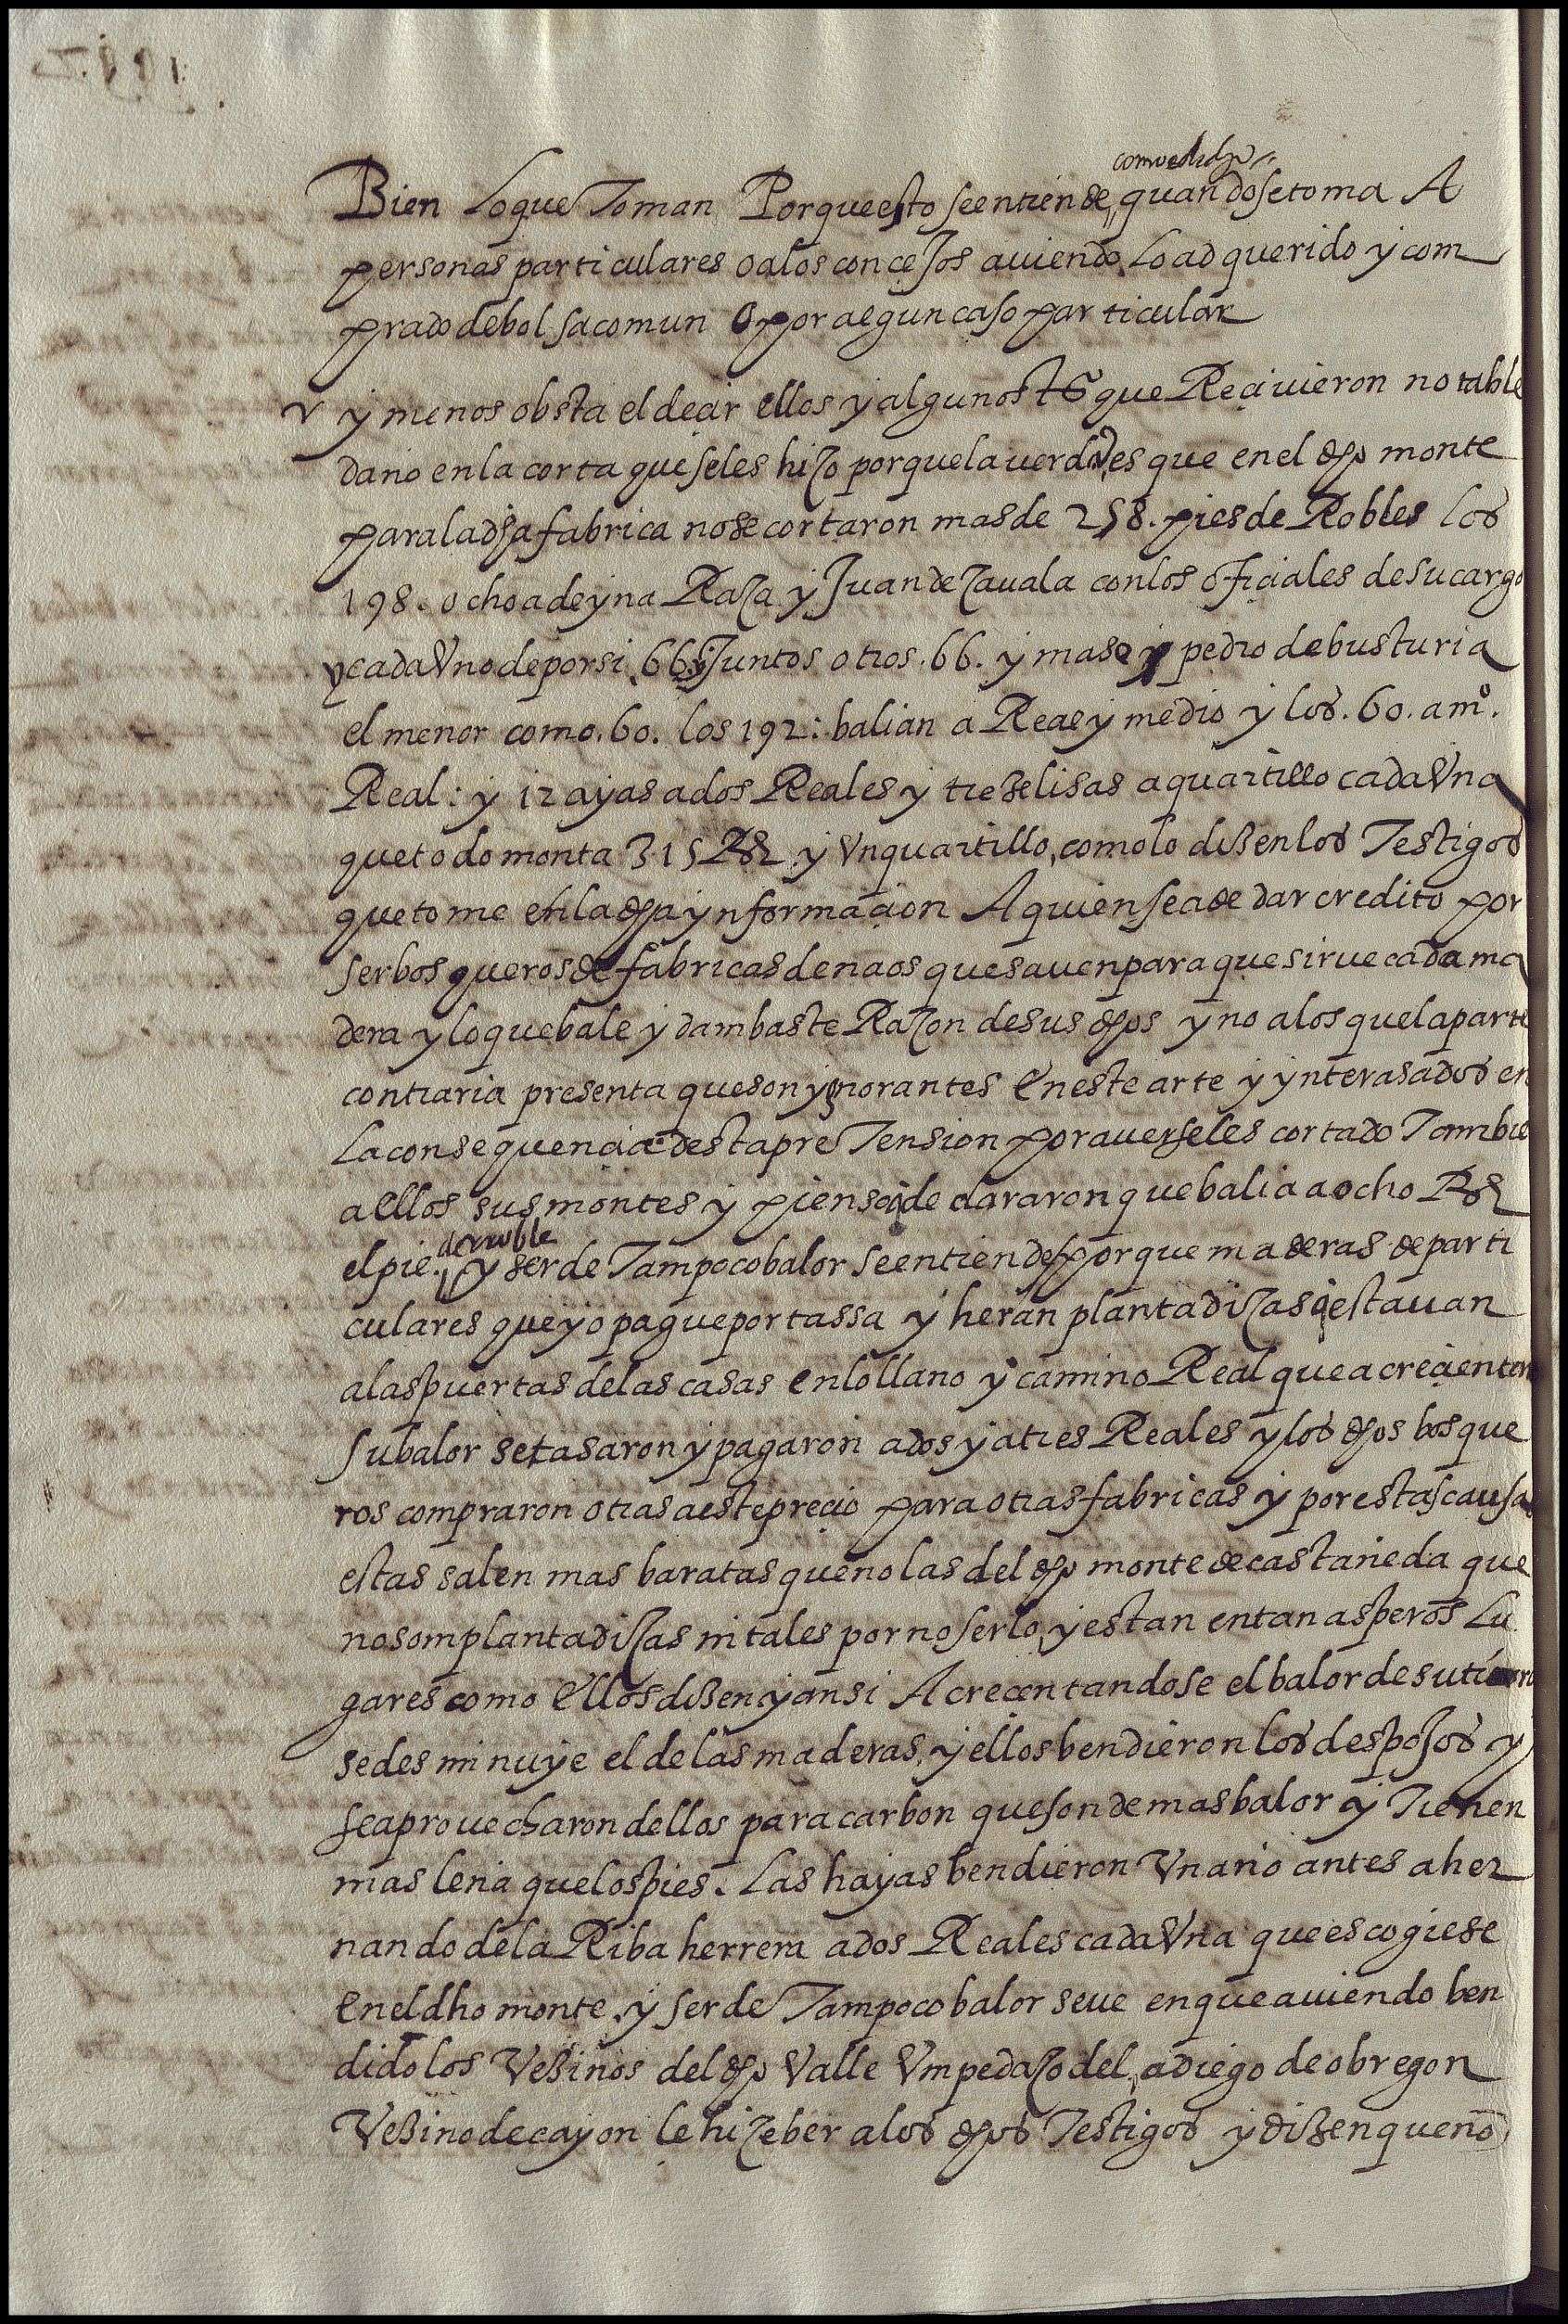 como es dicho
Bien Loque Toman Porque esto seentiende quando se toma A
personas particulares o alos concejos auiendo Lo adquerido y com
prado de bolsa comun O por algun caso particular
y menos obsta el decir ellos y algunos tso que Reciuieron notable
daño en la corta que seles hizo porque la uerdad es que en el dho monte
para la dha fabrica no se cortaron mas de 258. pies de Robles los
198. ochoa de yna Raza y Juan de Zauala con los oficiales de su cargo
y cada Vno de por si 66 y Juntos otros .66. y mase y pedro de busturia
el menor como .60. los 192: balian a Real y medio y los .60. a mo.
Real: y 12 ayas a dos Reales y treze lisas a quartillo cada Vna
que todo monta 315 Rs y Vn quartillo, como lo dizen los Testigos
que tome en la dha ynformacion A quien sea de dar credito por
ser bosqueros de fabricas de naos que sauen para que sirue cada ma
dera y lo que bale y dam baste Razon de sus dhos y no a los que la parte
contraria presenta que son ygnorantes en este arte y ynterasados en
La consequencia desta preTension por auerseles cortado Tambie
a ellos sus montes y piensa declararon que balia a ocho Rs
de rroble
el pie. y ser de Tampoco balor se entiende porque maderas de parti
culares que yo pague por tassa y heran plantadizas q estauan
a las puertas de las casas en lo llano y camino Real que acrecienten
su balor se tasaron y pagaron a dos y a tres Reales y los dhos bosque
ros compraron otras a este precio para otras fabricas y por estas causas
estas salen mas baratas que no las del dho monte de castañeda que
no som plantadizas ni tales por no serlo, y estan en tan asperos Lu
gares como ellos dizen y ansi Acrecentandose el balor de su
se desminuye el de las maderas, y ellos bendieron los despojos y
se aprouecharon dellos para carbon que son de mas balor y Tienen
mas leña que los pies. Las hayas bendieron Vn año antes a her
nando de la Riba herrera a dos Reales cada Vna que escogiese
en el dho monte, y ser de Tampoco balor se ue en que auiendo ben
dido los Vezinos del dho Valle Vm pedazo del, a diego de obregon
Vezino de cayon le hize ber a los dhos Testigos y dizen que no